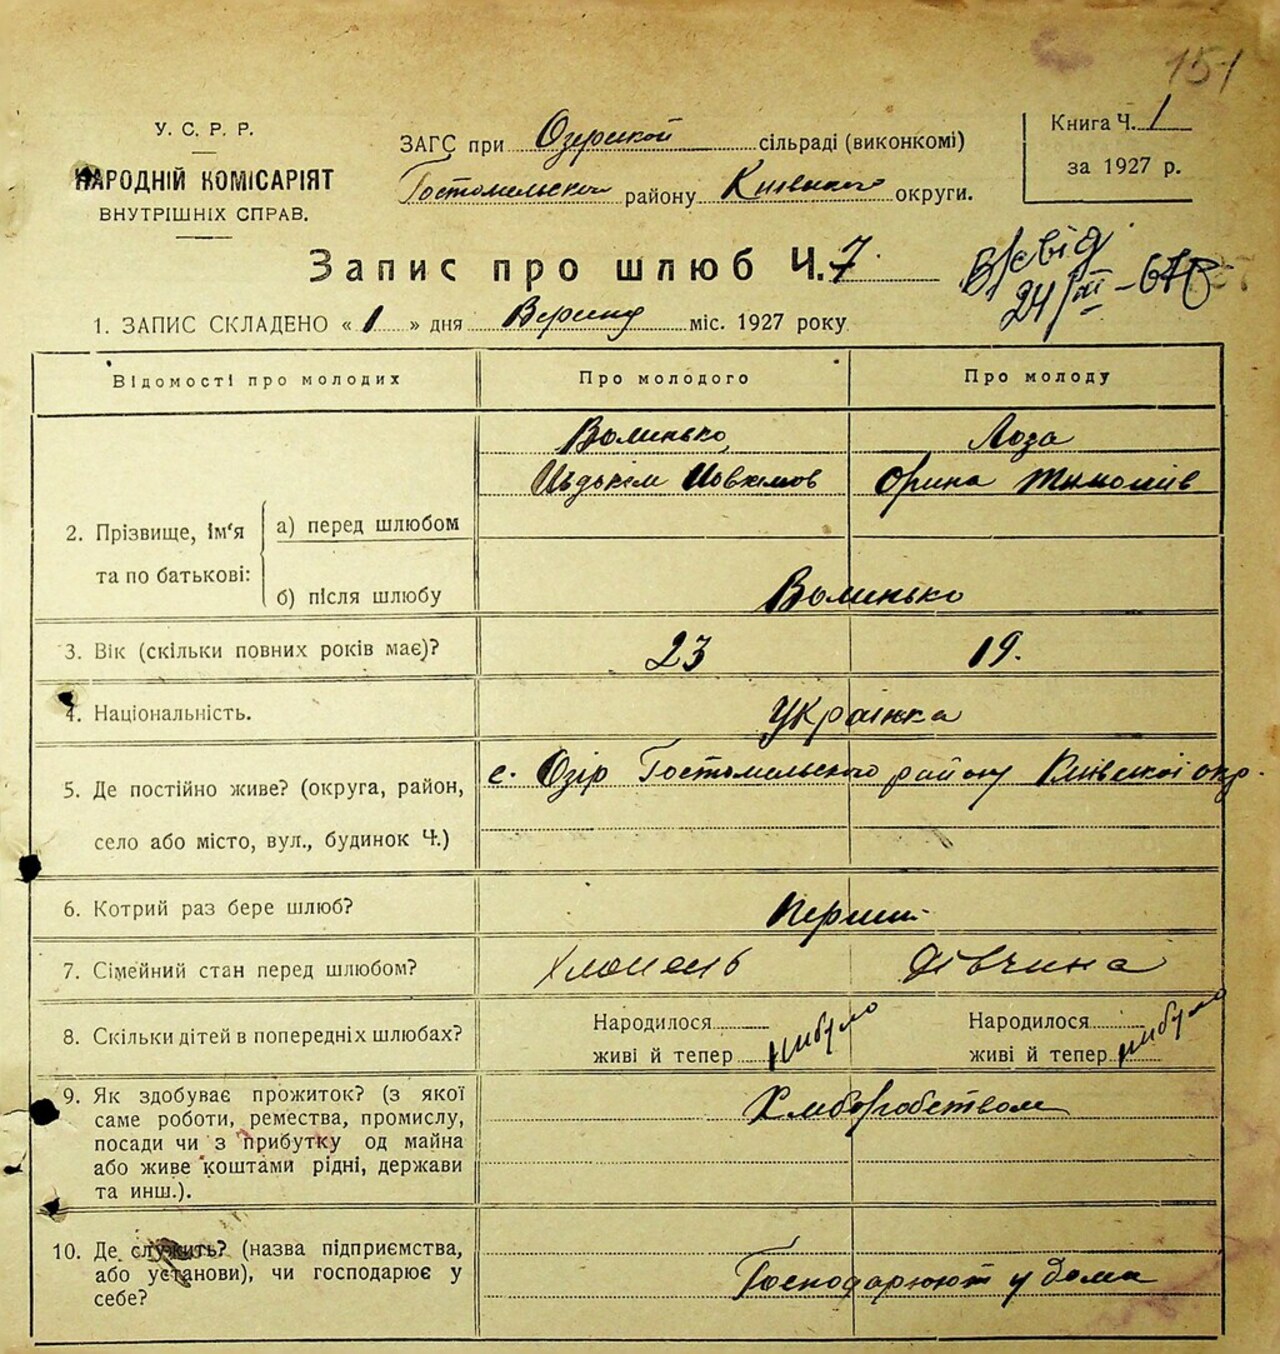 151
У. С. Р. Р.
НАРОДНІЙ КОМІСАРІЯТ
ВНУТРІШНІХ СПРАВ.
ЗАГС при Озерской сільраді (виконкомі)
Гостомельского району Київского округи.
Книга Ч. 1
за 1927 р.
Запис про шлюб Ч. 7.
1. ЗАПИС СКЛАДЕНО « 1 » дня Вересня міс. 1927 року
Відомості про молодих
Про молодого
Про молоду
2. Прізвище, ім'я та по батькові:
а) перед шлюбом
Волинько
Лоза
Орина
б) після шлюбу
Волинько
3. Вік (скільки повних років має)?
23
19.
4. Національність.
Українка
5. Де постійно живе? (округа, район,
село або місто, вул., будинок Ч.)
с. Озір Гостомельского району Київської окр.
6. Котрий раз бере шлюб?
Перший
7. Сімейний стан перед шлюбом?
Хлопець
Дівчина
8. Скільки дітей в попередніх шлюбах?
Народилося
живі й тепер
нибуло
Народилося
живі й тепер
нибуло
9. Як здобуває прожиток? (з якої
саме роботи, ремества, промислу,
посади чи з прибутку од майна
або живе коштами рідні, держави
та инш.).
Хлиборобством
10. Де служить? (назва підприємства,
або установи), чи господарює у
себе?
Господарюют у дома